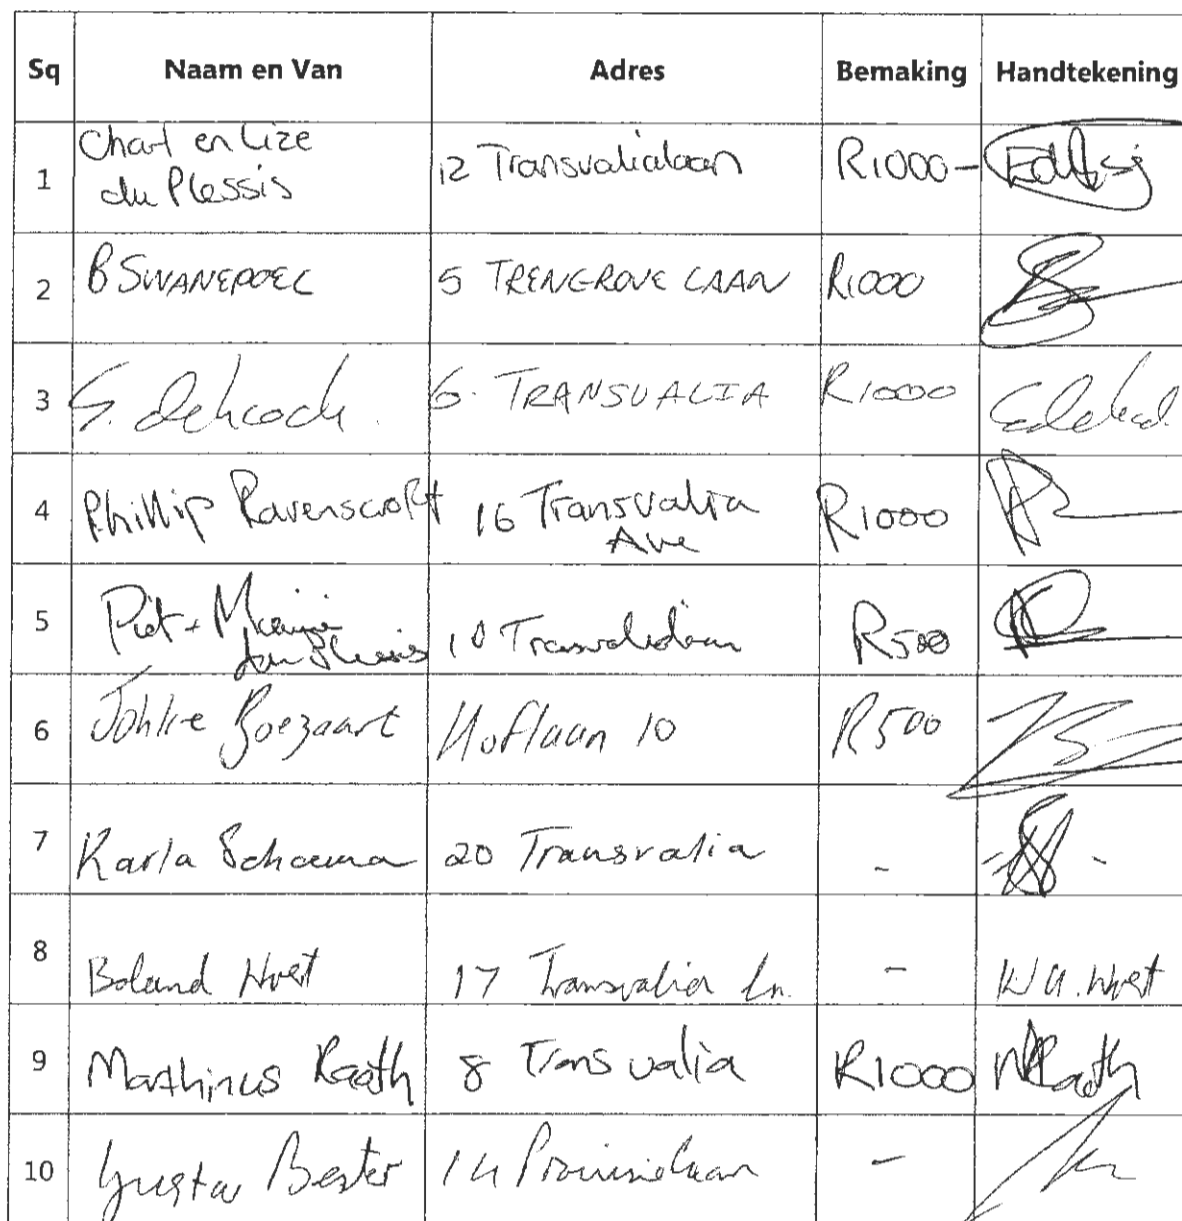 Sq Naam en Van Adres Bemaking Handtekening
1 Charl en Lize du Plessis 12 Transvalialaan R1000-
2 B SWANEPOEL 5 TRENGROVE LAAN R1000
3 G. deKock. 6. TRANSVALIA R1000
4 Phillip Ravenscroft 16 Transvalia Ave R1000
5 Piet + du Plessis 10 Transvalialaan R500
6 Boezaart Hoflaan 10 R500
7 Karla Schoeman 20 Transvalia -
8 Boland 17 Transvalia Ln. -
9 Marthinus Raath 8 Transvalia R1000 MRaath
10 Gustav Bester 14 Provinsielaan -